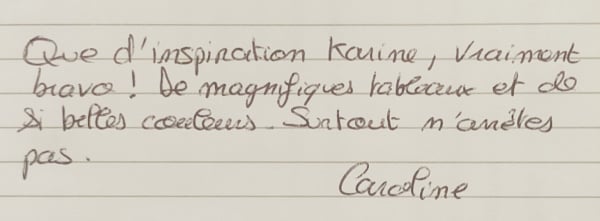 Que d'inspiration Karine, vraiment
bravo! De magnifiques tableaux et de
si belles couleurs. Surtout n'arrêtes
pas.
Caroline